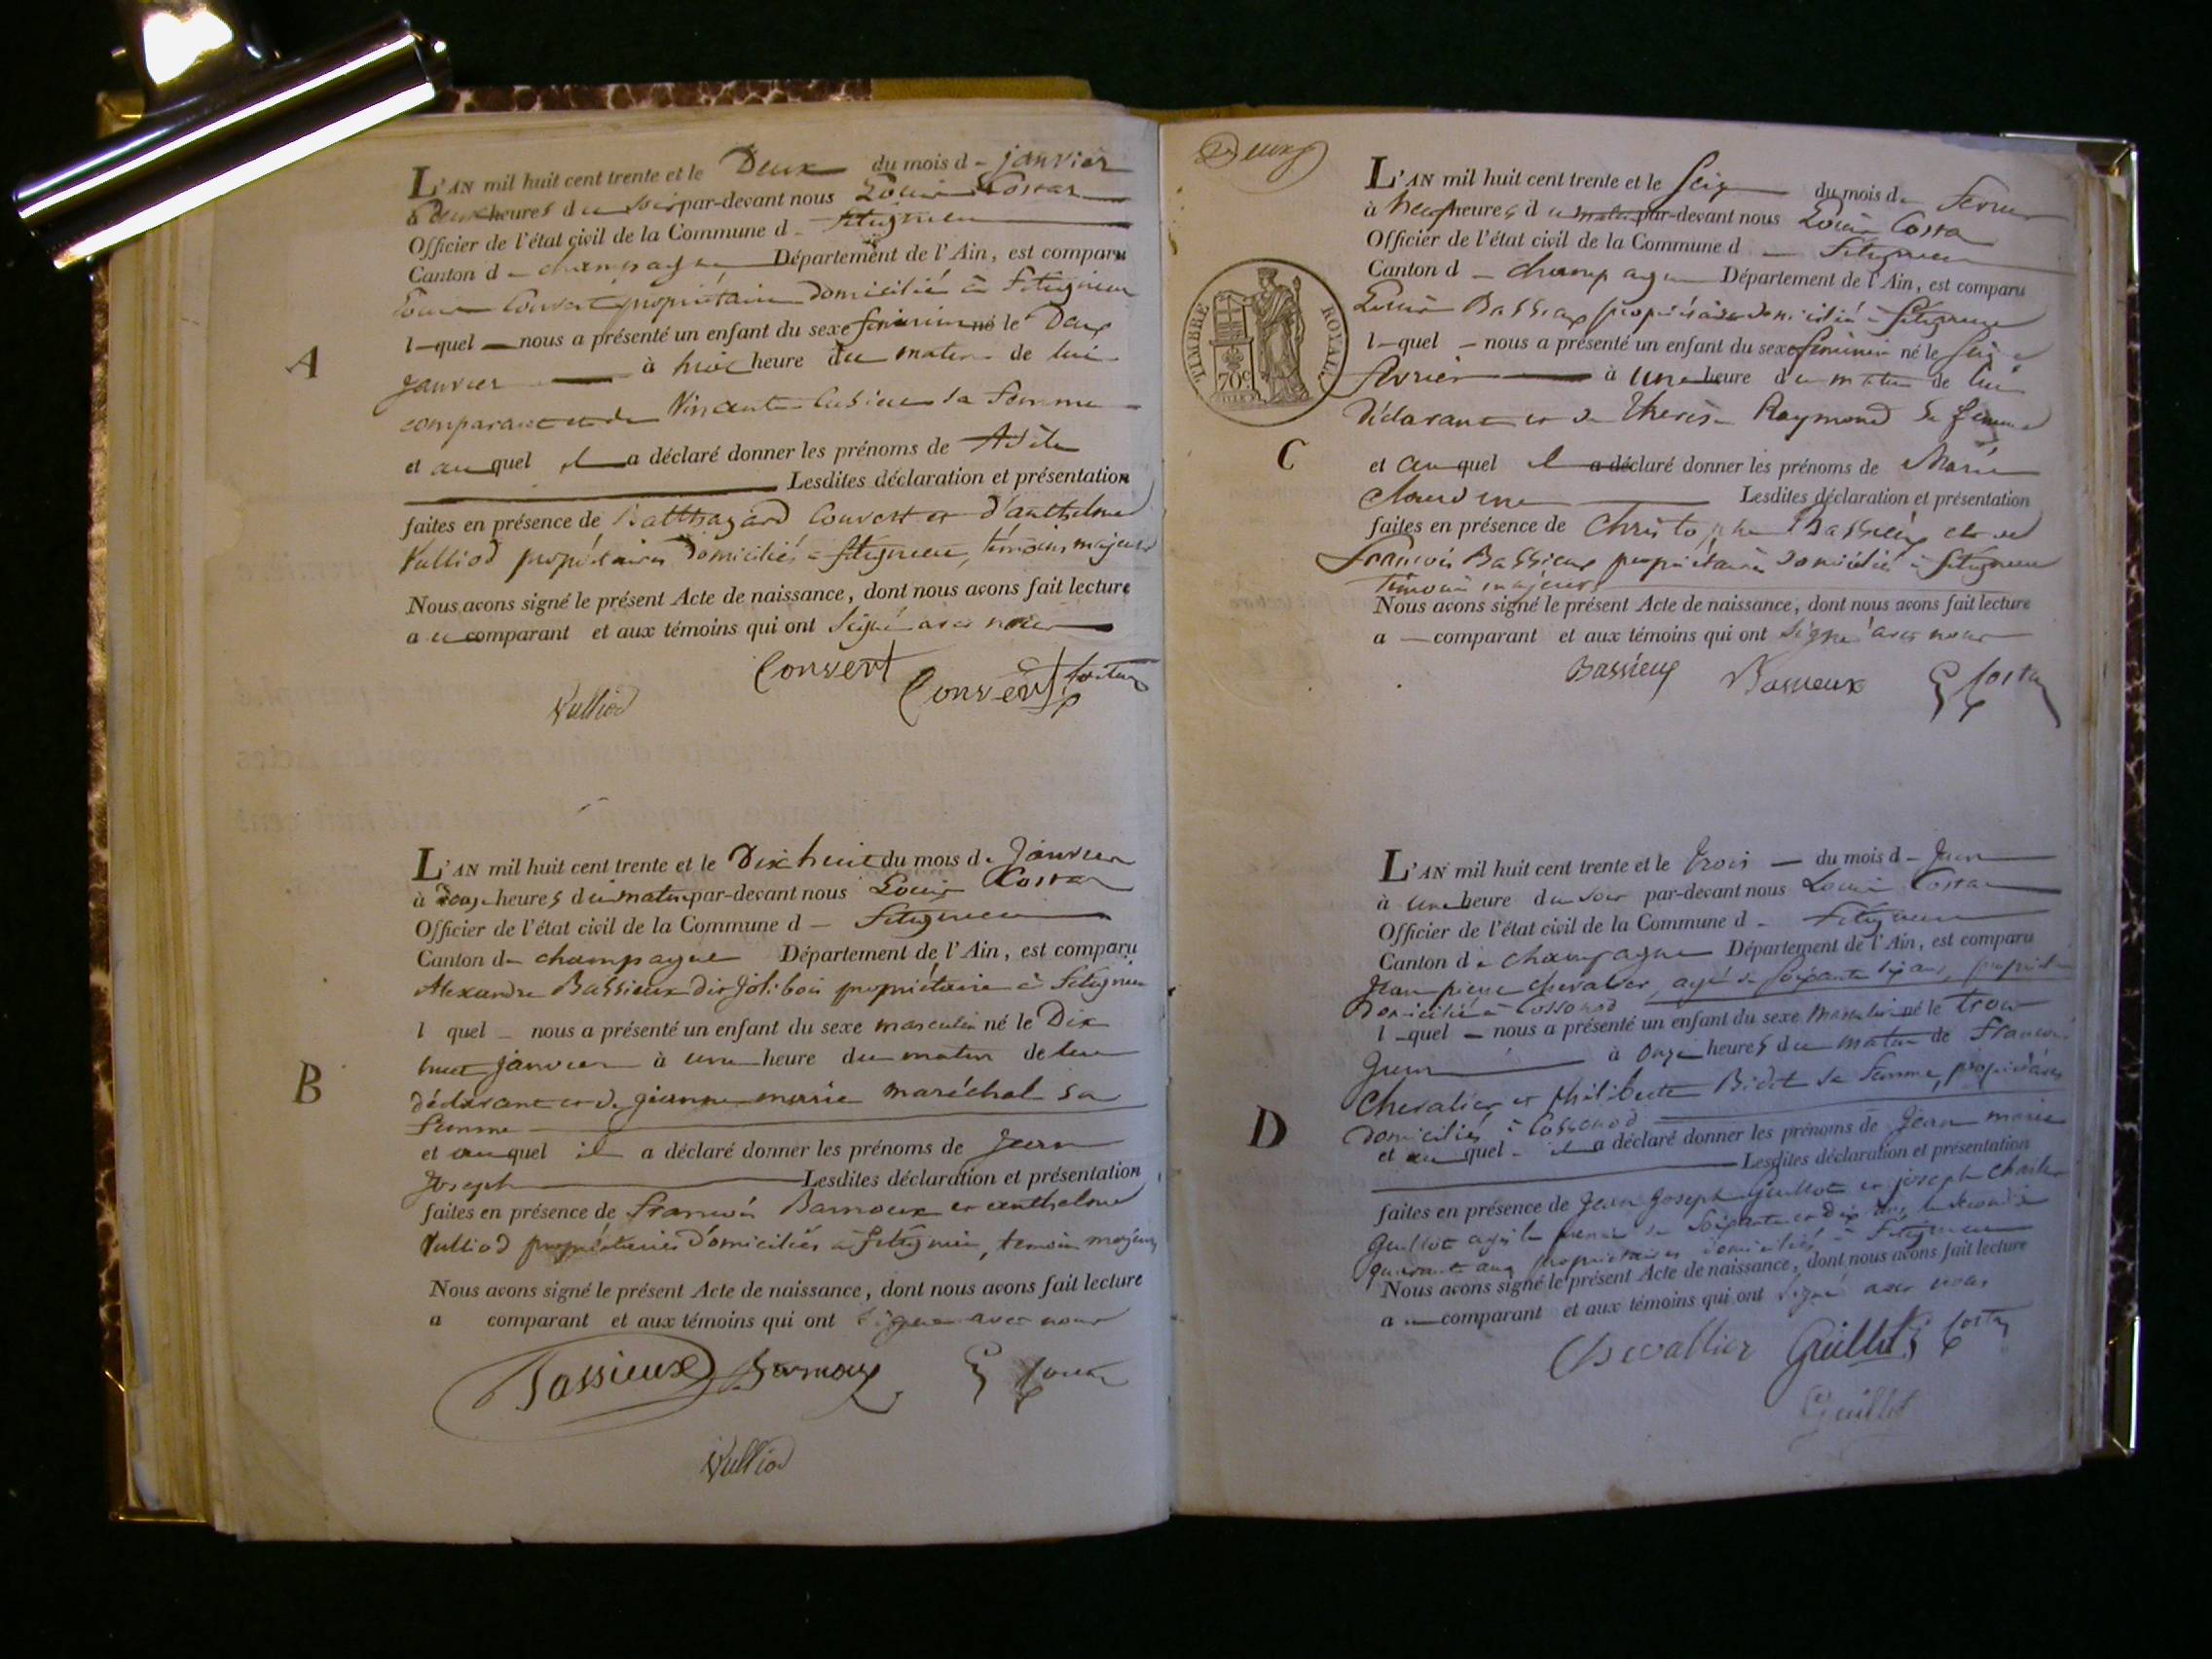 A
L'AN mil huit cent trente et le Deux du mois d - janvier
à deux heures du soir par-devant nous Louis Costaz
Officier de l'état civil de la Commune d - fitignieu
Canton d - champagne Département de l'Ain, est comparu
Convert propriétaire domicilié à fitignieu
l-quel nous a présenté un enfant du sexe feminin né le Deux
janvier à huit heure du matin de lui
comparant et de sa femme
et au quel il a déclaré donner les prénoms de Adèle
Lesdites déclaration et présentation
faites en présence de Balthazard Convert et d'anthelme
Vulliod propriétaires domiciliés à fitignieu, témoins majeurs
Nous avons signé le présent Acte de naissance, dont nous avons fait lecture
a u comparant et aux témoins qui ont Signé avec nous
Convert Convert Costaz
Vulliod
B
L'AN mil huit cent trente et le Dix huit du mois de Janvier
à heures du matin par-devant nous Louis Costaz
Officier de l'état civil de la Commune d - fitignieu
Canton d - champagne Département de l'Ain, est comparu
Alexandre Bassieux dit jolibois propriétaire à fitignieu
l quel - nous a présenté un enfant du sexe masculin né le Dix
huit janvier à une heure du matin de lui
déclarant et de jeanne marie maréchal sa
femme
et au quel il a déclaré donner les prénoms de Jean
Joseph Lesdites déclaration et présentation
faites en présence de françois Barnoux et anthelme
Vulliod propriétaires domiciliés à fitignieu, temoin majeurs
Nous avons signé le présent Acte de naissance, dont nous avons fait lecture
a comparant et aux témoins qui ont signé avec nous
Bassieux Barnoux Costaz
Vulliod
Deux
TIMBRE ROYAL
70c
C
L'AN mil huit cent trente et le Seize du mois de fevrier
à Neuf heures du matin par-devant nous Louis Costaz
Officier de l'état civil de la Commune d - fitignieu
Canton d - champagne Département de l'Ain, est comparu
Louis Bassieux propriétaire domicilié à fitignieu
l-quel - nous a présenté un enfant du sexe feminin né le Seize
fevrier à Une heure du matin de lui
Déclarant et de Therese Raymond Sa femme
et au quel il a déclaré donner les prénoms de Marie
Claudine Lesdites déclaration et présentation
faites en présence de Christophe Bassieux et de
francois Bassieux propriétaires domiciliés à fitignieu
Témoins majeurs
Nous avons signé le présent Acte de naissance, dont nous avons fait lecture
a - comparant et aux témoins qui ont Signé avec nous
Bassieux Bassieux Costaz
D
L'AN mil huit cent trente et le trois du mois d - Juin
à une heure du soir par-devant nous Louis Costaz
Officier de l'état civil de la Commune d - fitignieu
Canton de champagne Département de l'Ain, est comparu
Jean pierre chevalier, agé de soixante six ans, propriétaire
Domicilié à Cossonod
l-quel - nous a présenté un enfant du sexe masculin né le trois
Juin à onze heures du matin de francois
Chevalier et philiberte Bidet sa femme, propriétaires
domiciliés à Cossonod
et au quel - il a déclaré donner les prénoms de Jean marie
Lesdites déclaration et présentation
faites en présence de Jean Joseph Guillot et joseph
Guillot agés le premier de soixante et dix ans, le second de
quarante ans propriétaires domiciliés à fitignieu
Nous avons signé le présent Acte de naissance, dont nous avons fait lecture
a u comparant et aux témoins qui ont signé avec nous
Chevallier Guillot Costaz
Guillot